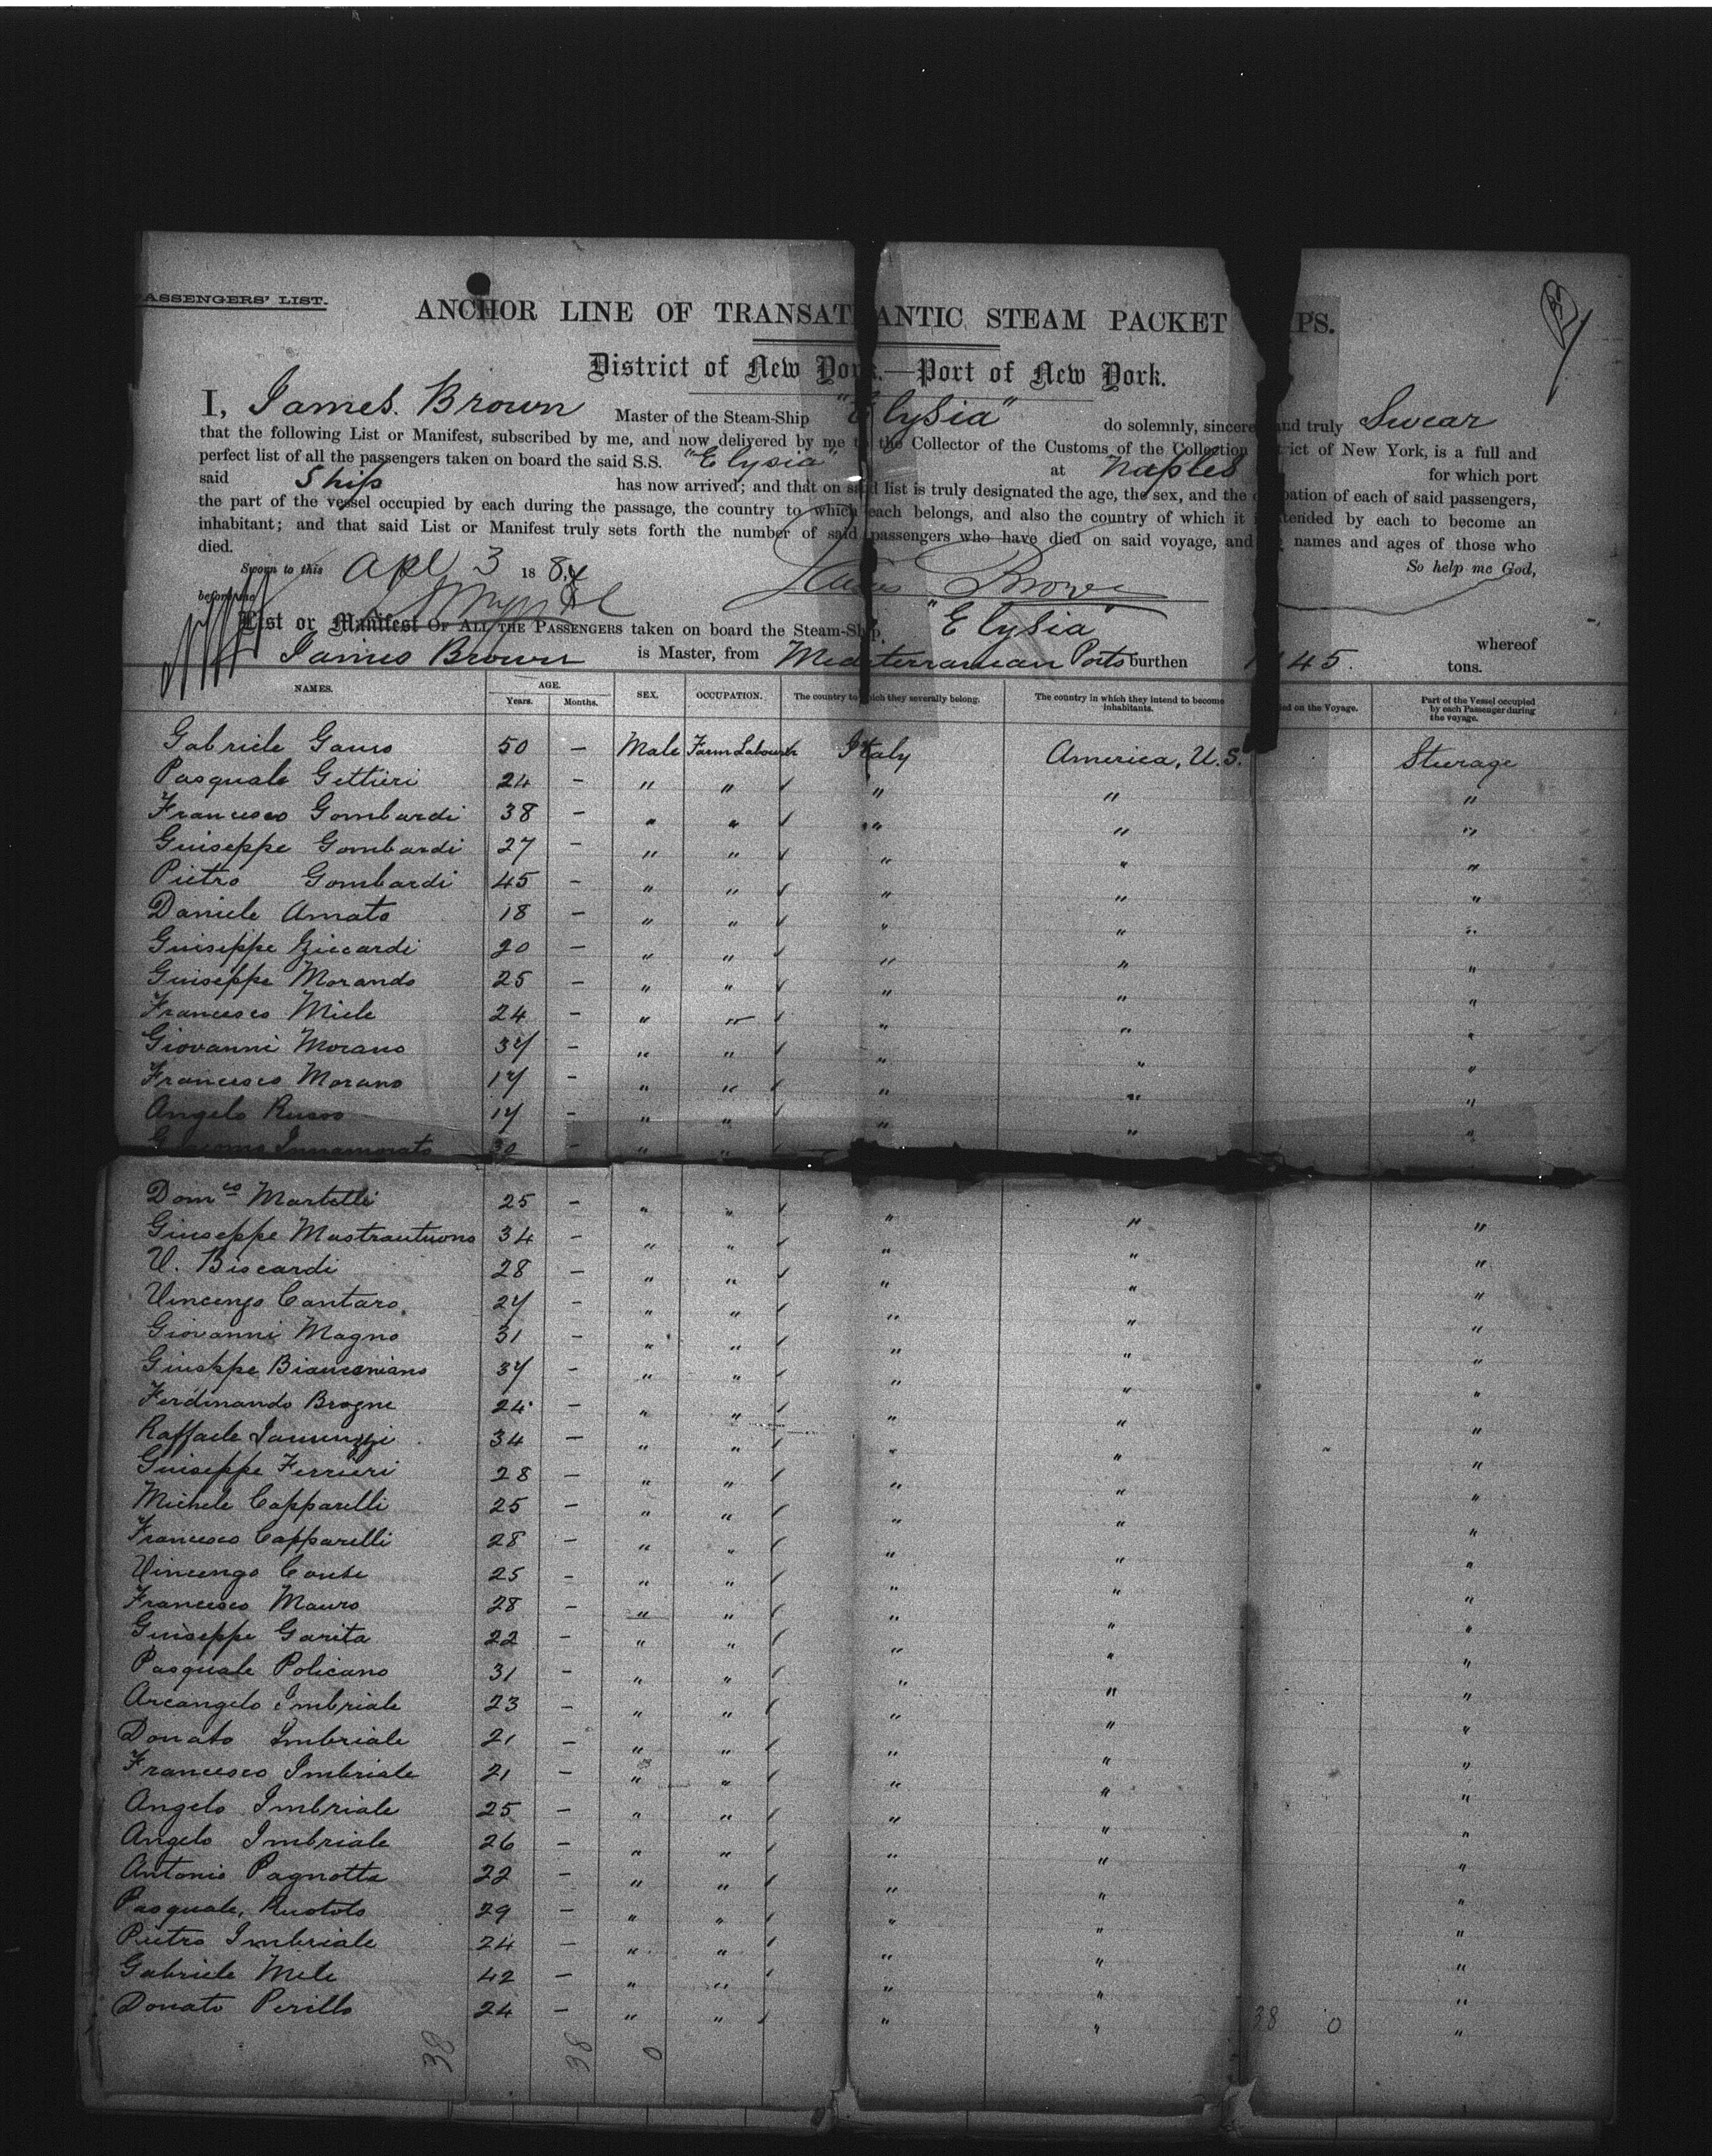 PASSENGERS' LIST.
ANCHOR LINE OF TRANSATLANTIC STEAM PACKET SHIPS.
District of New York.—Port of New York.
I, James. Brown Master of the Steam-Ship "Elysia" do solemnly, sincerely and truly Swear
that the following List or Manifest, subscribed by me, and now delivered by me to the Collector of the Customs of the Collection District of New York, is a full and
perfect list of all the passengers taken on board the said S.S. "Elysia" at Naples for which port
said Ship has now arrived; and that on said list is truly designated the age, the sex, and the occupation of each of said passengers,
the part of the vessel occupied by each during the passage, the country to which each belongs, and also the country of which it is intended by each to become an
inhabitant; and that said List or Manifest truly sets forth the number of said passengers who have died on said voyage, and the names and ages of those who
died. So help me God,
Sworn to this Apl 3 1884 James Brown
before me
List or Manifest OF ALL THE PASSENGERS taken on board the Steam-Ship, "Elysia" whereof
James Brown is Master, from Mediterranean Ports burthen 45. tons.
NAMES. AGE. Years. Months. SEX. OCCUPATION. The country to which they severally belong. The country in which they intend to become inhabitants. Died on the Voyage. Part of the Vessel occupied by each Passenger during the voyage.
Gabriele Gauro 50 — Male Farm Labourer Italy America, U.S. Steerage
Pasquale Gettieri 24 — " " " " "
Francesco Gombardi 38 — " " " " "
Giuseppe Gombardi 27 — " " " " "
Pietro Gombardi 45 — " " " " "
Daniele Amato 18 — " " " " "
Giuseppe Ziccardi 20 — " " " " "
Giuseppe Morando 25 — " " " " "
Francesco Miele 24 — " " " " "
Giovanni Morano 37 — " " " " "
Francesco Morano 17 — " " " " "
Angelo Russo 17 — " " " " "
Innamorato 30 — " "
Domco Martelli 25 — " " " " "
Giuseppe Mastrantuono 34 — " " " " "
V. Biscardi 28 — " " " " "
Vincenzo Cantaro. 27 — " " " " "
Giovanni Magno 31 — " " " " "
Giuseppe Bianconiano 37 — " " " " "
Ferdinando Brogne 24 — " " " " "
Raffaele Iannuzzi 34 — " " " " "
Giuseppe Ferrieri 28 — " " " " "
Michele Capparelli 25 — " " " " "
Francesco Capparelli 28 — " " " " "
Vincenzo Conte 25 — " " " " "
Francesco Mauro 28 — " " " " "
Giuseppe Garita 22 — " " " " "
Pasquale Policano 31 — " " " " "
Arcangelo Imbriale 23 — " " " " "
Donato Imbriale 21 — " " " " "
Francesco Imbriale 21 — " " " " "
Angelo Imbriale 25 — " " " " "
Angelo Imbriale 26 — " " " " "
Antonio Pagnotta 22 — " " " " "
Pasquale Ruototo 29 — " " " " "
Pietro Imbriale 24 — " " " " "
Gabriele Mele 42 — " " " " "
Donato Perillo 24 — " " " " "
38 38 0 38 0